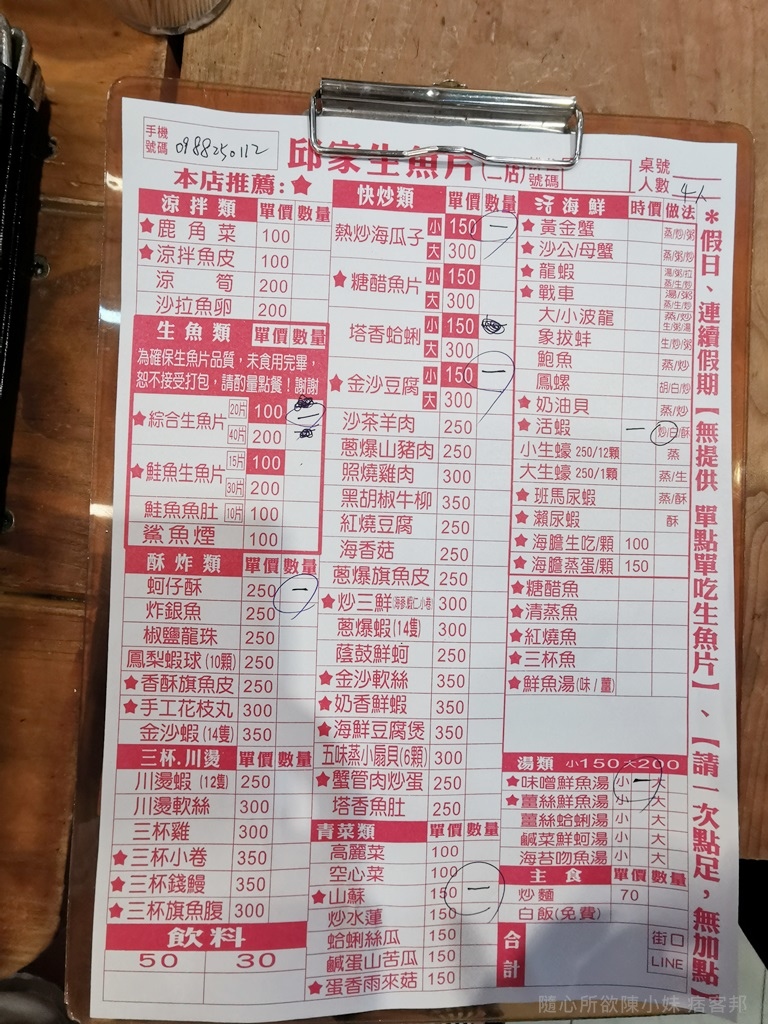 手機號碼 0988250112
邱家生魚片(二店)號碼
桌號
人數 4人
本店推薦:★
涼拌類 單價 數量
★鹿角菜 100
★涼拌魚皮 100
涼筍 200
沙拉魚卵 200
生魚類 單價 數量
為確保生魚片品質，未食用完畢，
恕不接受打包，請酌量點餐！謝謝
★綜合生魚片 20片 100 一
40片 200
★鮭魚生魚片 15片 100
30片 200
鮭魚魚肚 10片 100
鯊魚煙 100
酥炸類 單價 數量
蚵仔酥 250 一
炸銀魚 250
椒鹽龍珠 250
鳳梨蝦球(10顆) 250
★香酥旗魚皮 250
★手工花枝丸 300
金沙蝦(14隻) 350
三杯.川燙 單價 數量
川燙蝦(12隻) 250
川燙軟絲 300
三杯雞 300
★三杯小卷 350
★三杯錢鰻 350
★三杯旗魚腹 300
飲料
50 30
快炒類 單價 數量
熱炒海瓜子 小 150 一
大 300
★糖醋魚片 小 150
大 300
塔香蛤蜊 小 150
大 300
★金沙豆腐 小 150 一
大 300
沙茶羊肉 250
蔥爆山豬肉 250
照燒雞肉 300
黑胡椒牛柳 350
紅燒豆腐 250
海香菇 250
蔥爆旗魚皮 250
★炒三鮮(海參.蝦仁.小卷) 300
蔥爆蝦(14隻) 300
蔭鼓鮮蚵 250
★金沙軟絲 350
★奶香鮮蝦 350
★海鮮豆腐煲 350
五味蒸小扇貝(6顆) 300
★蟹管肉炒蛋 250
塔香魚肚 250
青菜類 單價 數量
高麗菜 100
空心菜 100
★山蘇 150 一
炒水蓮 150
蛤蜊絲瓜 150
鹹蛋山苦瓜 150
★蛋香雨來菇 150
活海鮮 時價 做法
★黃金蟹 蒸/炒/粥
★沙公/母蟹 蒸/粥/炒
★龍蝦 湯/粥/拉 蒸/生/炒
★戰車 湯/粥 蒸/生/炒
大/小波龍 蒸/炒 生/粥/湯
象拔蚌 生/炒/粥
鮑魚 蒸/炒
鳳螺 胡/白/炒
★奶油貝 蒸/炒
★活蝦 一 炒/白/酥
小生蠔 250/12顆 蒸
大生蠔 250/1顆 蒸/生
★班馬尿蝦 蒸/酥
★瀨尿蝦 酥
★海膽生吃/顆 100
★海膽蒸蛋/顆 150
★糖醋魚
★清蒸魚
★紅燒魚
★三杯魚
★鮮魚湯(味/薑)
湯類 小150大200
★味噌鮮魚湯 小 一 大
★薑絲鮮魚湯 小 大
薑絲蛤蜊湯 小 大
鹹菜鮮蚵湯 小 大
海苔吻魚湯 小 大
主食 單價 數量
炒麵 70
白飯(免費)
合計 街口
LINE
＊假日、連續假期【無提供 單點單吃生魚片】、【請一次點足，無加點】
隨心所欲陳小妹 痞客邦